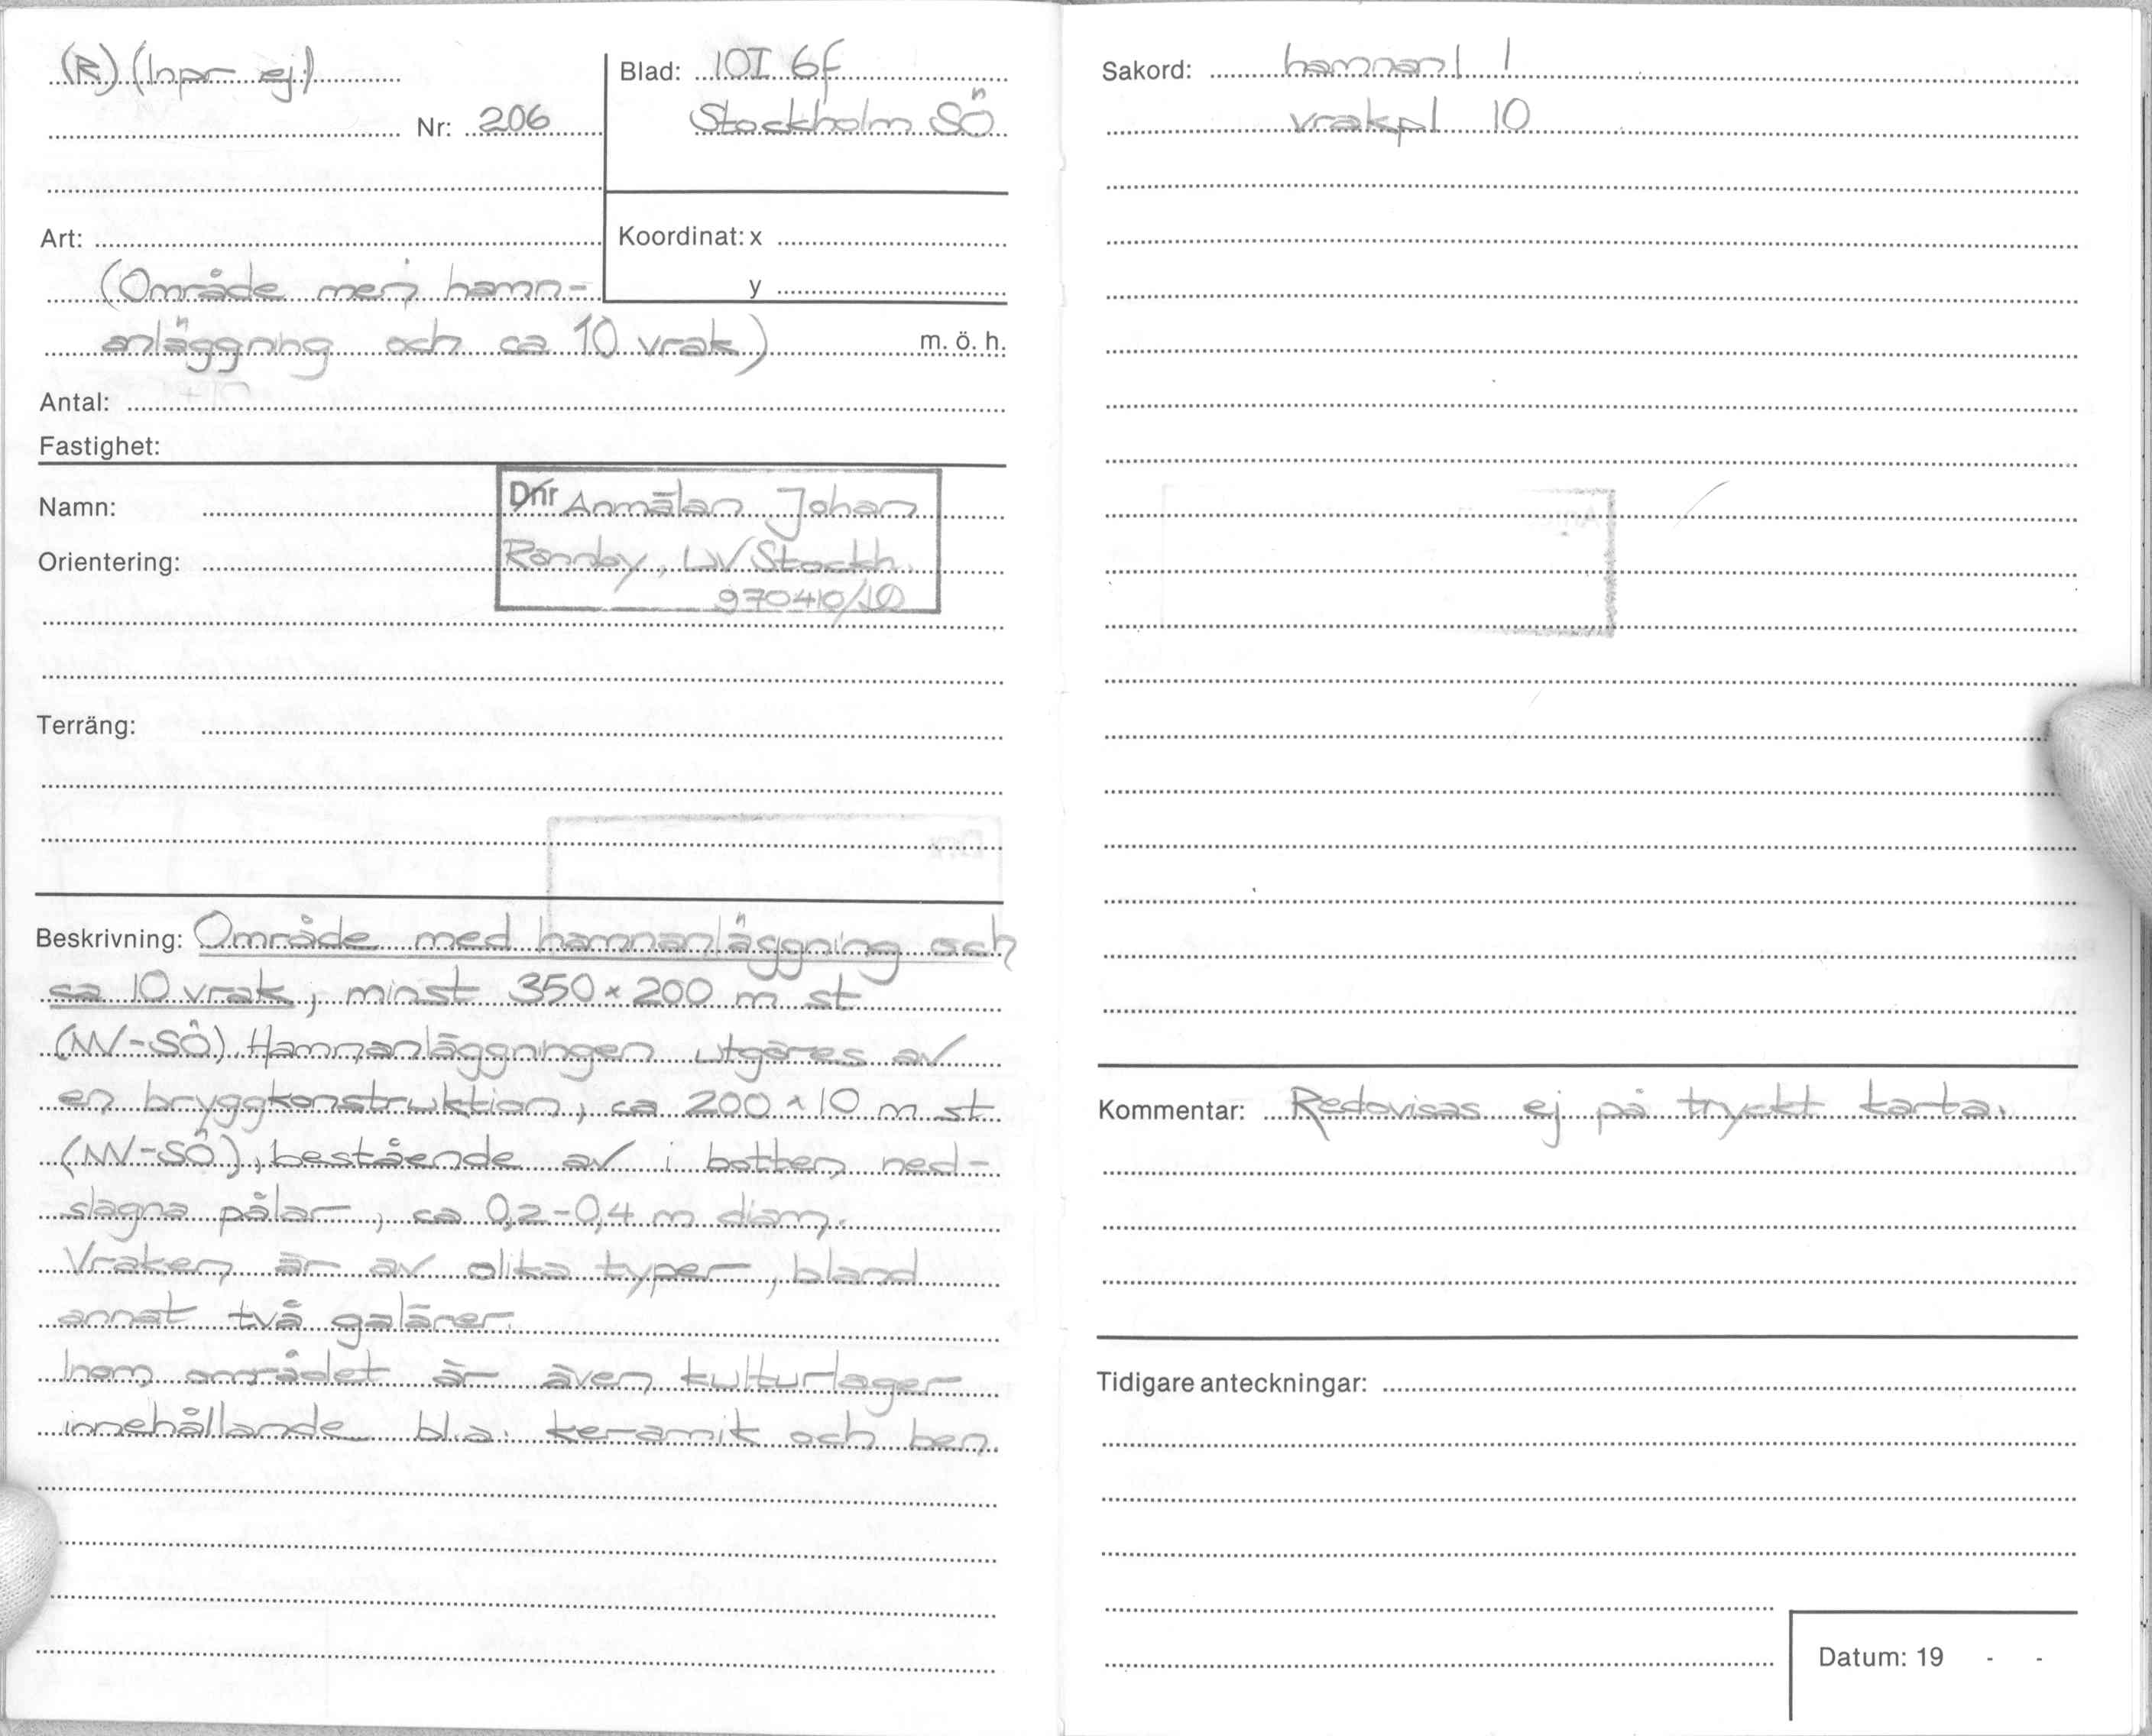 (R) (Inpr ej)
Nr: 206
Blad: 10I 6f
Stockholm SÖ
Art:
Koordinat: x
y
(Område med hamn-
anläggning och ca 10 vrak)
m. ö. h.
Antal:
Fastighet:
Namn:
Dnr Anmälan Johan
Orientering:
Rönnby, UV Stockh.
970410/
Terräng:
Beskrivning: Område med hamnanläggning och
ca 10 vrak, minst 350 x 200 m st
(NV-SÖ). Hamnanläggningen utgöres av
en bryggkonstruktion, ca 200 x 10 m st
(NV-SÖ), bestående av i botten ned-
slagna pålar, ca 0,2-0,4 m diam.
Vraken är av olika typer, bland
annat två galärer.
Inom området är även kulturlager
innehållande bl.a. keramik och ben.
Sakord: hamnanl 1
vrakpl 10
Kommentar: Redovisas ej på tryckt karta.
Tidigare anteckningar:
Datum: 19 - -